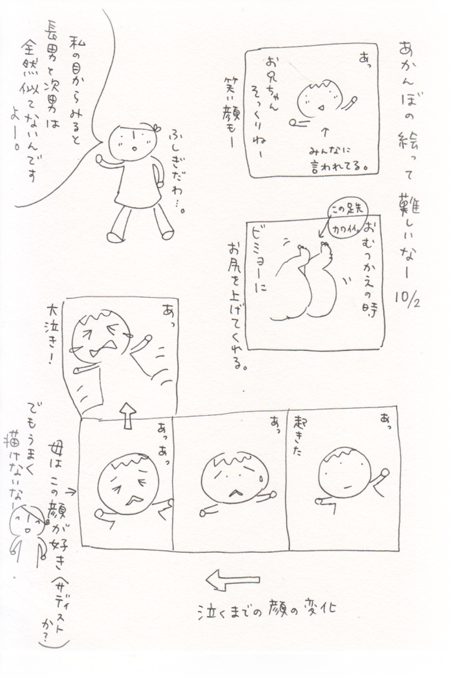 あかんぼの絵って難しいなー 10/2
あっ
お兄ちゃん
そっくりねー
みんなに
言われてる。
笑い顔もー
私の目からみると
長男と次男は
全然似てないんです
よー。
ふしぎだわ…。
おむつかえの時
この足先
カワイイ。
ビミョーに
お尻を上げてくれる。
あっ
起きた
あっ
あっあっ
あっ
大泣き!
母はこの顔が好き(サディストか?)
でもうまく
描けないなー
泣くまでの顔の変化